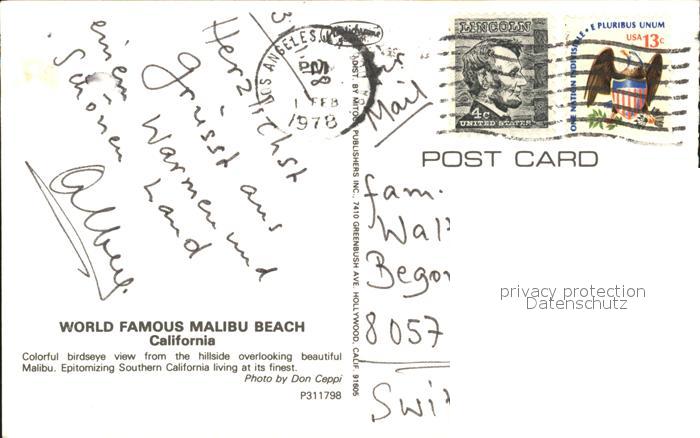 3.
Herzlichst
Grüsst aus
Warmen und
einem
Schönen Land
Albert
LOS ANGELES, CA
PM
28
1 FEB
1978
DIST. BY MITOCK PUBLISHERS INC., 7410 GREENBUSH AVE. HOLLYWOOD, CALIF. 91605
LINCOLN
4c
UNITED STATES
E PLURIBUS UNUM
USA 13c
ONE NATION INDIVISIBLE
Air
Mail
POST CARD
fam.
Wal
Begon
8057
Swi
privacy protection
Datenschutz
WORLD FAMOUS MALIBU BEACH
California
Colorful birdseye view from the hillside overlooking beautiful
Malibu. Epitomizing Southern California living at its finest.
Photo by Don Ceppi
P311798